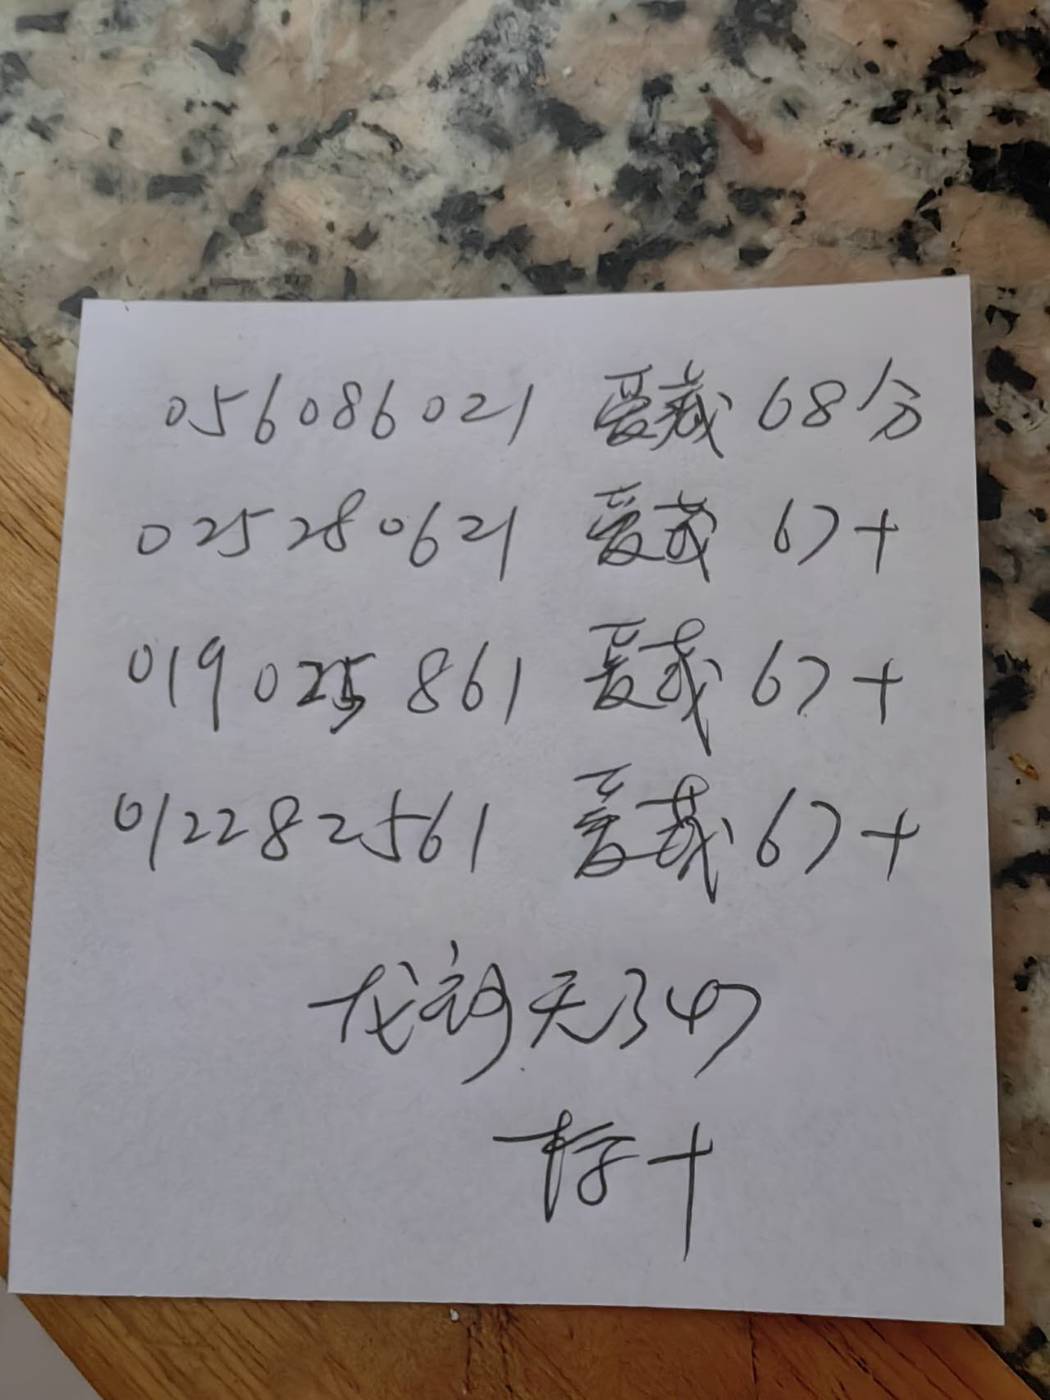 056086021 爱藏 68分
025280621 爱藏 67+
019025861 爱藏 67+
012282561 爱藏 67+
龙 天 347
标十